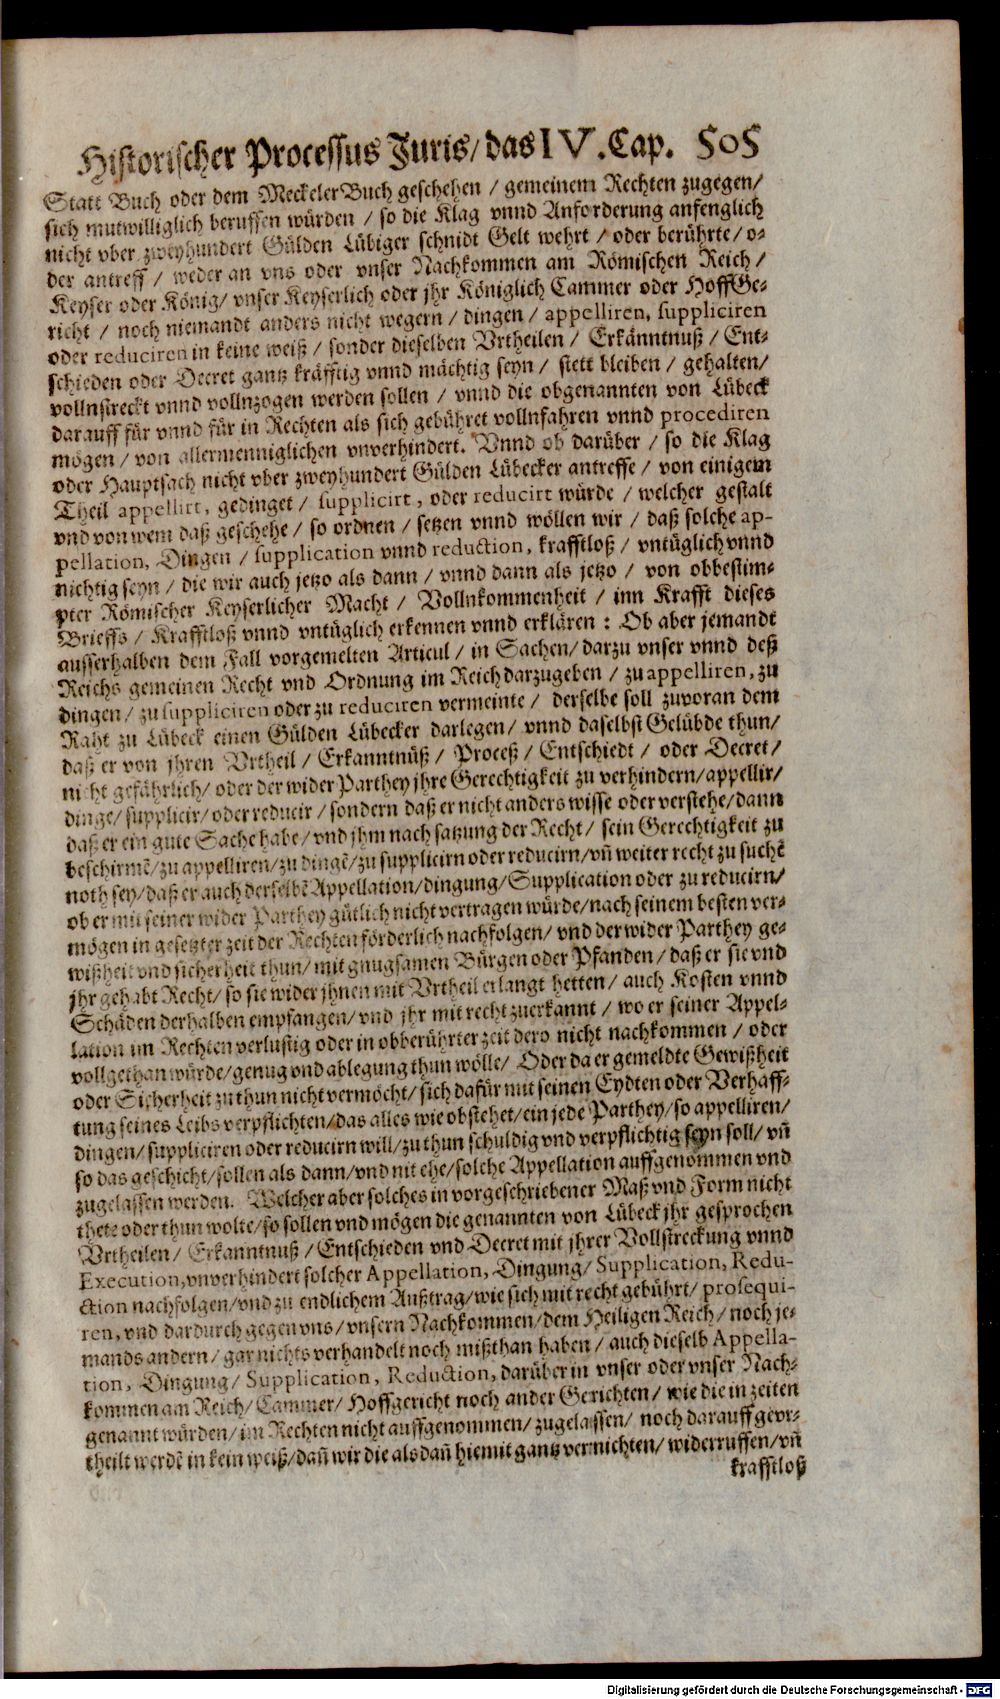 Historischer Processus Juris/ das IV. Cap. 505
Statt Buch oder dem Meckeler Buch geschehen / gemeinem Rechten zugegen/
sich mutwilliglich beruffen würden / so die Klag vnnd Anforderung anfenglich
nicht vber zweyhundert Gülden Lübiger schnidt Gelt wehrt / oder berührte/ o-
der antreff / weder an vns oder vnser Nachkommen am Römischen Reich /
Keyser oder König/ vnser Keyserlich oder jhr Königlich Cammer oder HoffGe-
richt / noch niemandt anders nicht wegern / dingen / appelliren, suppliciren
oder reduciren in keine weiß / sonder dieselben Vrtheilen / Erkänntnuß / Ent-
schieden oder Decret gantz kräfftig vnnd mächtig seyn / stett bleiben / gehalten/
vollnstreckt vnnd vollnzogen werden sollen / vnnd die obgenannten von Lübeck
darauff für vnnd für in Rechten als sich gebühret vollnfahren vnnd procediren
mögen / von allermenniglichen vnverhindert. Vnnd ob darüber / so die Klag
oder Hauptsach nicht vber zweyhundert Gülden Lübecker antreffe / von einigem
Theil appellirt, gedinget / supplicirt, oder reducirt würde / welcher gestalt
vnd von wem daß geschehe / so ordnen / setzen vnnd wöllen wir / daß solche ap-
pellation, Dingen / supplication vnnd reduction, krafftloß / vntüglich vnnd
nichtig seyn / die wir auch jetzo als dann / vnnd dann als jetzo / von obbestim-
pter Römischer Keyserlicher Macht / Vollnkommenheit / inn Krafft dieses
Brieffs / Krafftloß vnnd vntüglich erkennen vnnd erklären : Ob aber jemandt
ausserhalben dem Fall vorgemelten Articul / in Sachen/ darzu vnser vnnd deß
Reichs gemeinen Recht vnd Ordnung im Reich darzugeben / zu appelliren, zu
dingen / zu suppliciren oder zu reduciren vermeinte / derselbe soll zuvoran dem
Raht zu Lübeck einen Gülden Lübecker darlegen/ vnnd daselbst Gelübde thun/
daß er von jhren Vrtheil / Erkanntnüß / Proceß / Entschiedt / oder Decret/
nicht gefährlich/ oder der wider Parthey jhre Gerechtigkeit zu verhindern/appellir/
dinge/ supplicir/ oder reducir / sondern daß er nicht anders wisse oder verstehe/dann
daß er ein gute Sache habe/ vnd jhm nach satzung der Recht/ sein Gerechtigkeit zu
beschirmē/zu appelliren/zu dingē/zu supplicirn oder reducirn/vn̄ weiter recht zu suchē
noth sey/daß er auch derselbē Appellation/dingung/Supplication oder zu reducirn/
ob er mit seiner wider Parthey gütlich nicht vertragen würde/nach seinem besten ver-
mögen in gesetzter zeit der Rechten förderlich nachfolgen/ vnd der wider Parthey ge-
wißheit vnd sicherheit thun/ mit gnugsamen Bürgen oder Pfanden/ daß er sie vnd
jhr gehabt Recht/ so sie wider jhnen mit Vrtheil erlangt hetten/ auch Kosten vnnd
Schäden derhalben empfangen/ vnd jhr mit recht zuerkannt / wo er seiner Appel-
lation im Rechten verlustig oder in obberührter zeit dero nicht nachkommen / oder
vollgethan würde/genug vnd ablegung thun wölle/ Oder da er gemeldte Gewißheit
oder Sicherheit zu thun nicht vermöcht/ sich dafür mit seinen Eydten oder Verhaff-
tung seines Leibs verpflichten/das alles wie obstehet/ein jede Parthey/so appelliren/
dingen/suppliciren oder reducirn will/zu thun schuldig vnd verpflichtig seyn soll/ vn̄
so das geschicht/sollen als dann/vnd nit ehe/solche Appellation auffgenommen vnd
zugelassen werden. Welcher aber solches in vorgeschriebener Maß vnd Form nicht
thete oder thun wolte/so sollen vnd mögen die genannten von Lübeck jhr gesprochen
Vrtheilen/ Erkanntnuß / Entschieden vnd Decret mit jhrer Vollstreckung vnnd
Execution, vnverhindert solcher Appellation, Dingung/ Supplication, Redu-
ction nachfolgen/vnd zu endlichem Außtrag/wie sich mit recht gebührt/ prosequi-
ren, vnd dardurch gegen vns/ vnsern Nachkommen/dem Heiligen Reich / noch je-
mands andern / gar nichts verhandelt noch mißthan haben / auch dieselb Appella-
tion, Dingung/ Supplication, Reduction, darüber in vnser oder vnser Nach-
kommen am Reich/ Cammer/ Hoffgericht noch ander Gerichten/ wie die in zeiten
genannt würden/ im Rechten nicht auffgenommen/ zugelassen/ noch darauff gevr-
theilt werdē in kein weiß/dan̄ wir die als dan̄ hiemit gantz vernichten/ widerruffen/vn̄
krafftloß
Digitalisierung gefördert durch die Deutsche Forschungsgemeinschaft - DFG